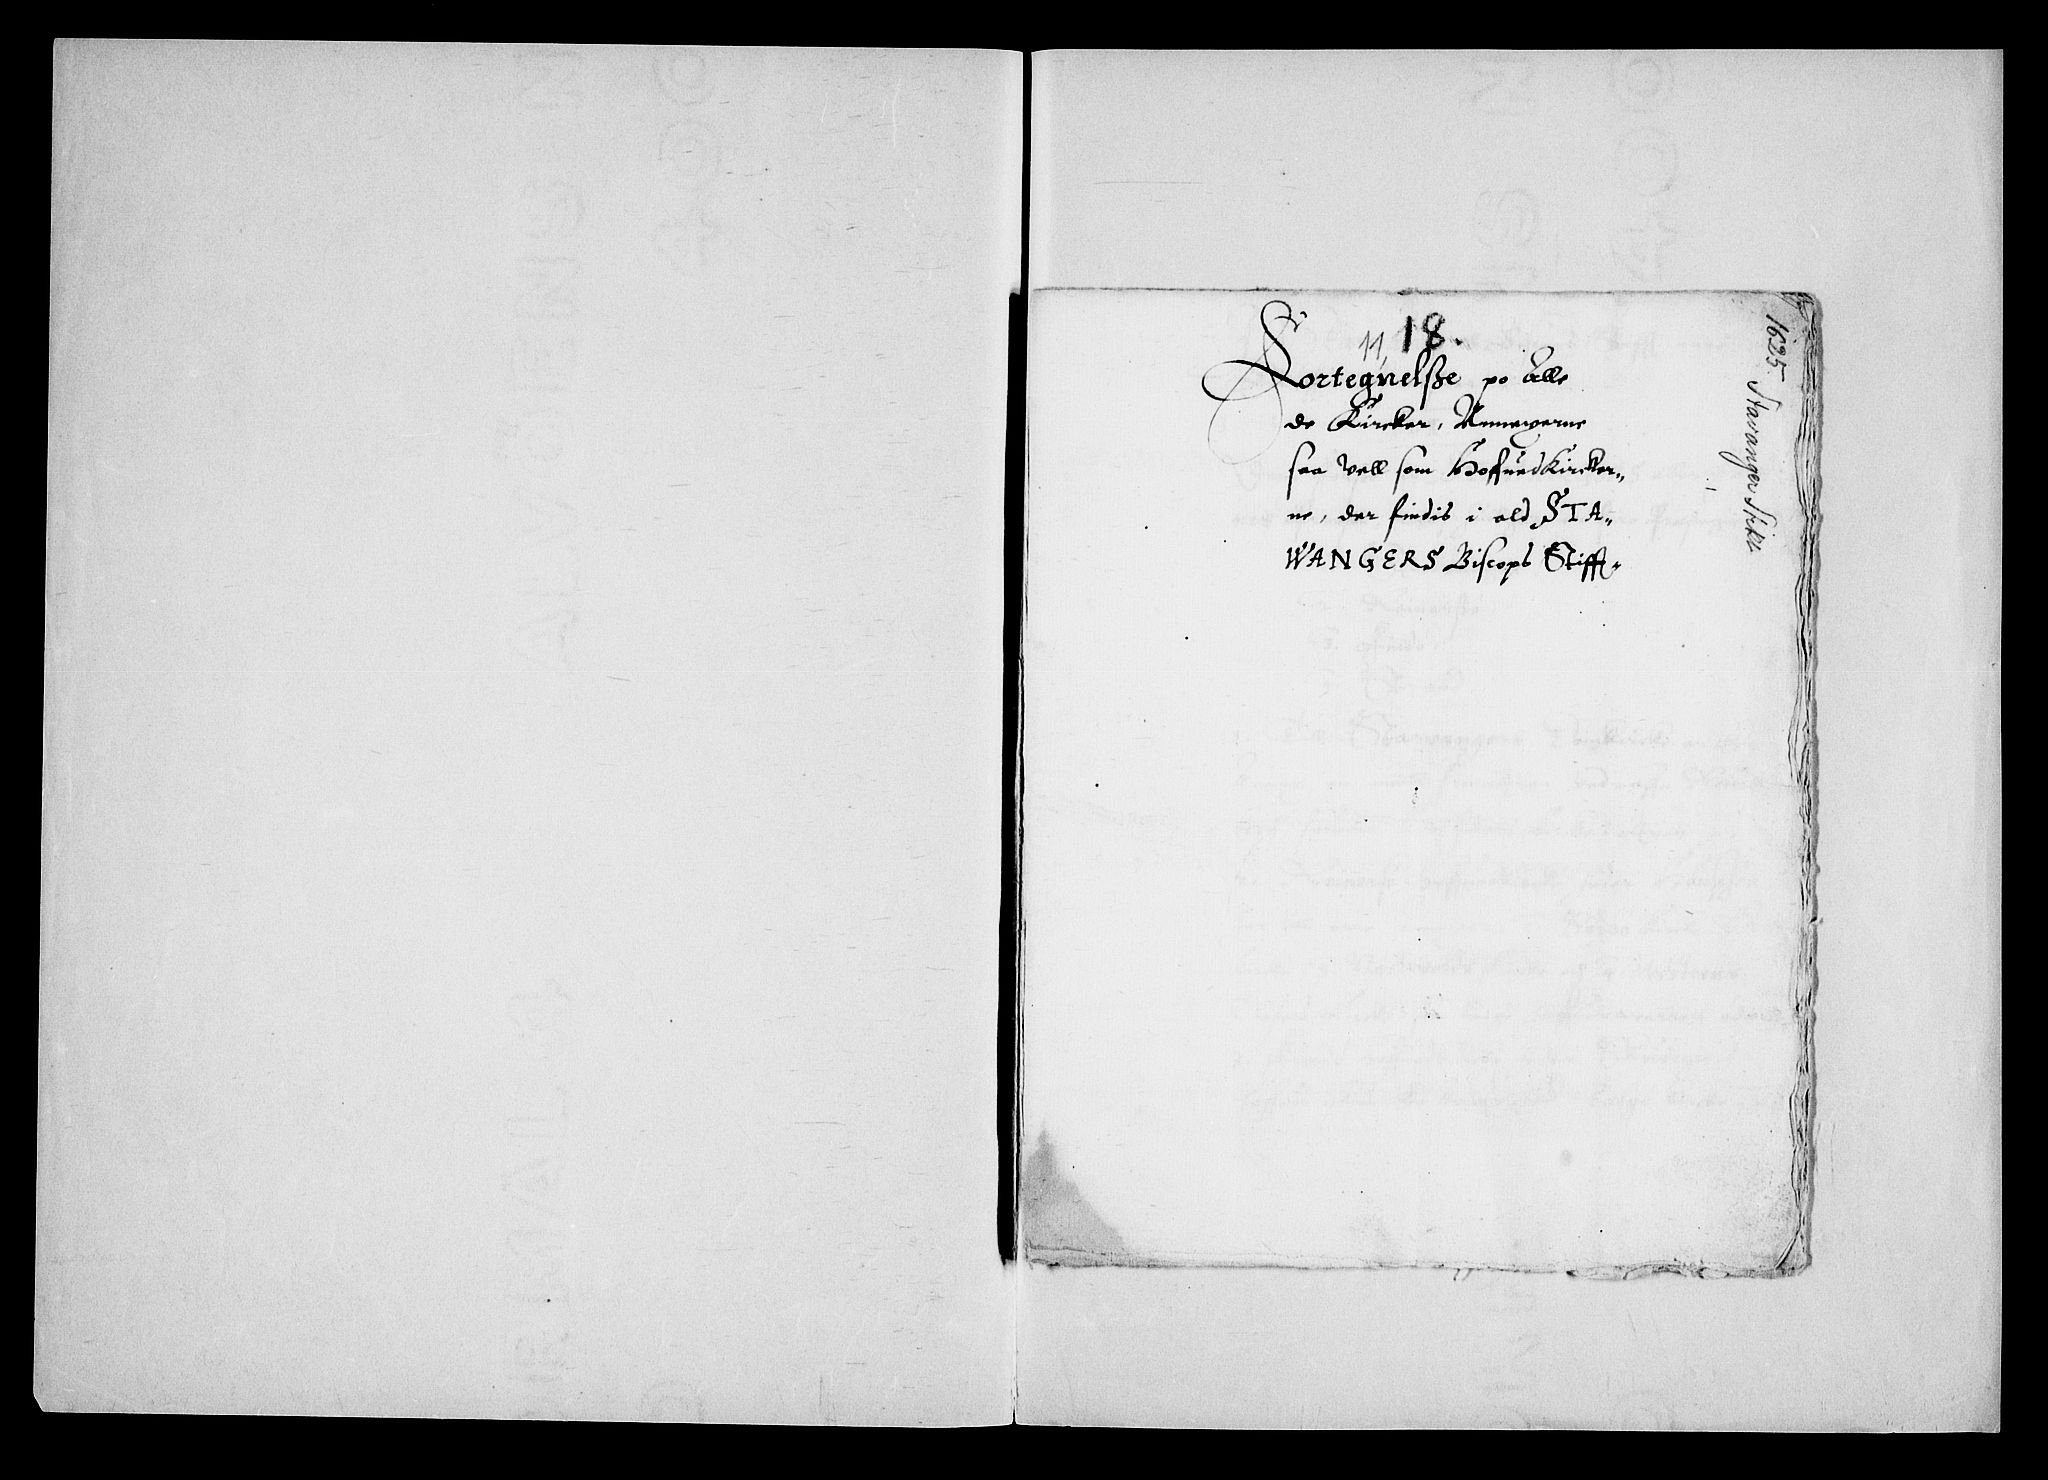 11, 18.
Fortegnelsße po alle
de Kircker, Annexerne
saa vell som HoffuedKircker„
ne, der findis i ald STA„
WANGERS Biscops Stifft.
1625. Stavanger Stift